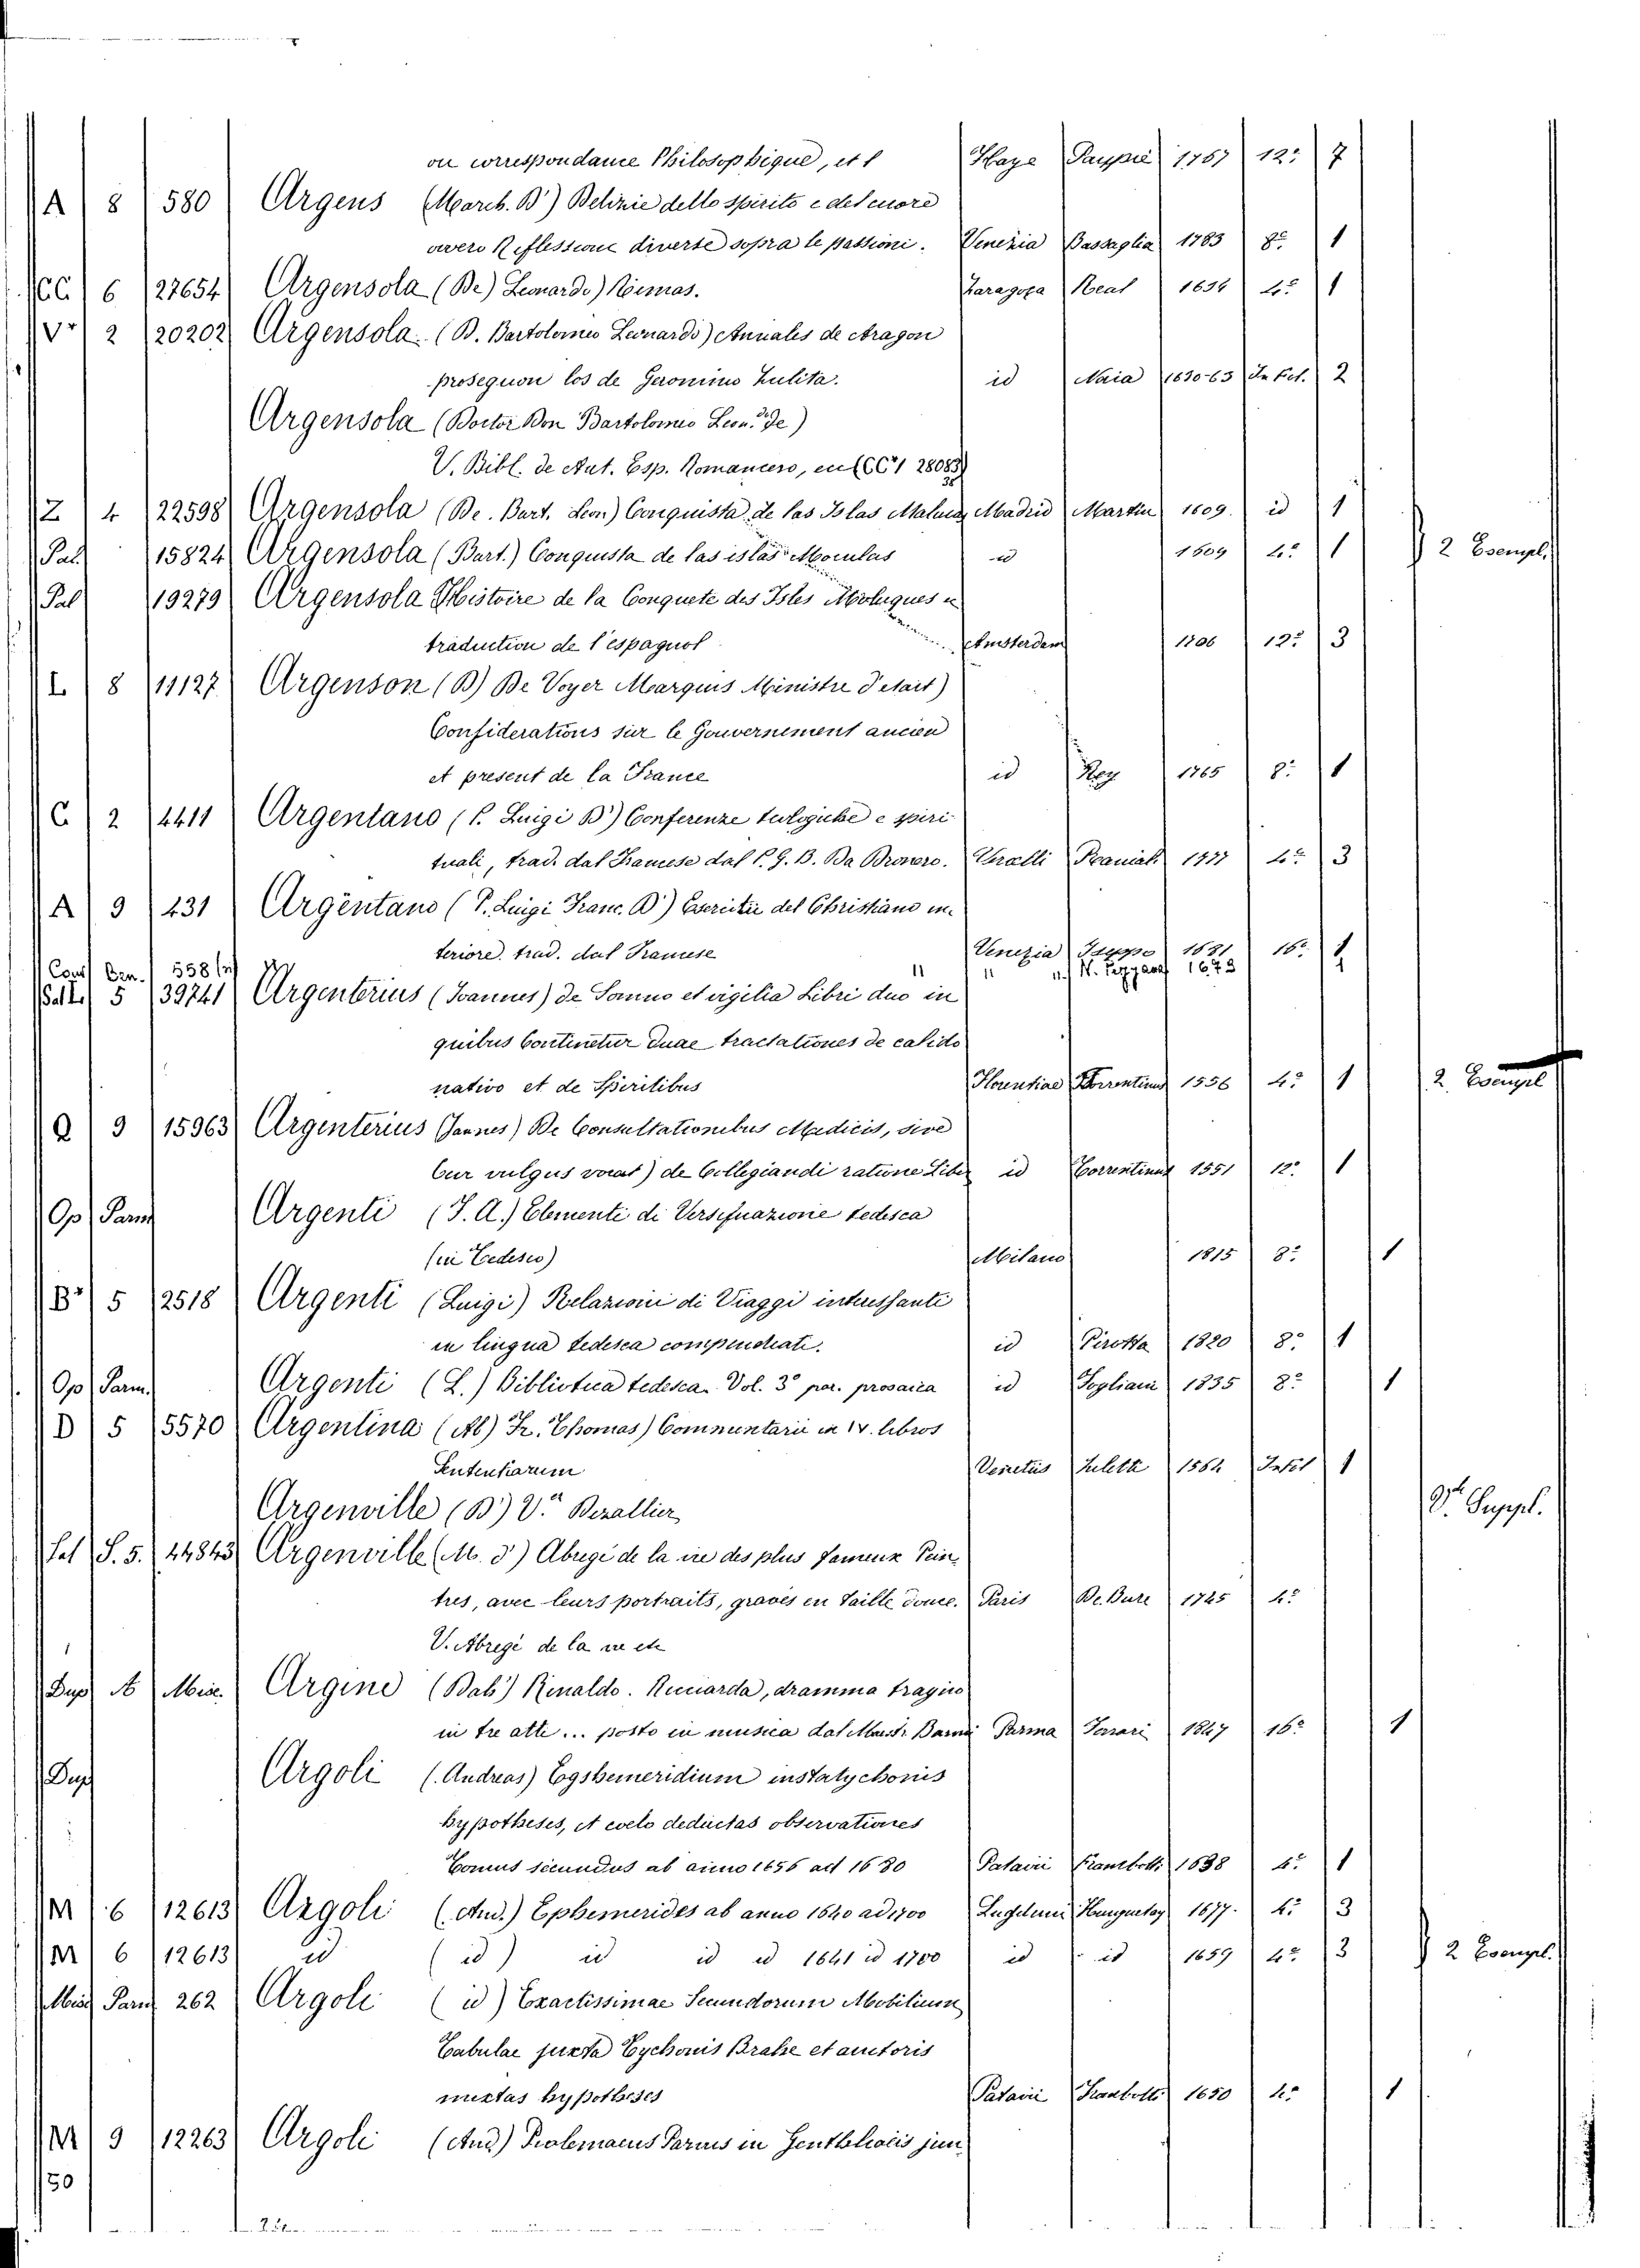 ou correspondance Philosophique, et l Haye Paupie 1767 12º 7
A 8 580 Argens (March. D') Delizie dello spirito e del cuore
ovvero Riflessione diverse sopra le passioni. Venezia Bassaglia 1783 8º 1
CC 6 27654 Argensola (De) Leonardo) Rimas. Zaragoza Real 1634 4º 1
Vº 2 20202 Argensola (B. Bartolomeo Leonardo) Annales de Aragon
prosequon los de Geronimo Zulita. id Naia 1630-63 In Fol. 2
Argensola (Doctor Don Bartolomeo Leon.do de)
V. Bibl. de Aut. Esp. Romancero, en (CCº 1 28083/38)
Z 4 22598 Argensola (De. Bart. Leon.) Conquista de las Islas Malucas Madrid Martin 1609 id 1
Pal 15824 Argensola (Bart.) Conquista de las islas Moculas id 1609 4º 1 } 2 Esempl.
Pal 19279 Argensola Histoire de la Conquete des Isles Moluques
traduction de l'espagnol Amsterdam 1706 12º 3
L 8 11127 Argenson (D) De Voyer Marquis Ministre d'etait)
Considerations sur le Gouvernement ancien
et present de la France id Rey 1765 8º 1
C 2 4411 Argentano (P. Luigi D') Conferenze teologiche e spiri-
tuali, trad. dal Francese dal P. G. B. Da Bronoro. 1777 4º 3
A 9 431 Argentano (P. Luigi Franc. D') Esercitii del Christiano in-
teriore trad. dal Francese Venezia 1681 16º 1
Conf Ben. 558 " " N. Pezzana 1673 1
Salt. 5 39741 Argenterius (Joannes) de Somno et vigilia Libri duo in
quibus Continetur duae tractationes de calido
nativo et de Spiritibus Florentiae Torrentinus 1556 4º 1 2 Esempl
Q 9 15963 Argenterius (Joannes) De Consultationibus Medicis, sive
(ur vulgus vocat) de Collegiandi ratione Liber id Torrentinus 1551 12º 1
Op Parm Argenti (J. A.) Elementi di Versificazione tedesca
(in Tedesco) Milano 1815 8º 1
Bº 5 2518 Argenti (Luigi) Relazioni di Viaggi interessanti
in lingua tedesca compendiati. id Pirotta 1820 8º 1
Op Parm. Argenti (L.) Biblioteca tedesca. Vol. 3º par. prosaica id Fogliani 1835 8º 1
D 5 5570 Argentina (Ab) Fr. Thomas) Commentarii in IV. libros
Sententiarum Venetiis Juletti 1564 In fol 1
Argenville (D') V.ª Dezallier V.e Suppl.
Sal S. 5. 44843 Argenville (M. d') Abregé de la vie des plus fameux Pein-
tres, avec leurs portraits, gravés en taille douce. Paris De Bure 1745 4º
V. Abregé de la vie etc
Dup A Misc. Argine (Dall') Rinaldo. Ricciarda, dramma tragico
in tre atti... posto in musica dal Maest. Parma Ferrari 1847 16º 1
Dup Argoli (Andreas) Egshemeridium instatychonis
hypotheses, et coelo deductas observationes
Tomus secundus ab anno 1656 ad 1680 Patavii Frambotti 1638 4º 1
M 6 12613 Argoli (And.) Ephemerides ab anno 1640 ad 1700 Lugduni Huguetan 1677 4º 3
M 6 12613 id (id) id id id 1641 id 1700 id id 1659 4º 3 } 2 Esempl.
Misc Parm 262 Argoli (id) Exactissimae Secundorum Mobilium
Tabulae juxta Tychonis Brahe et auctoris
mixtas hypotheses Patavii Frambotti 1650 4º 1
M 9 12263 Argoli (And) Ptolemaeus Parvus in Genthliacis jun
50